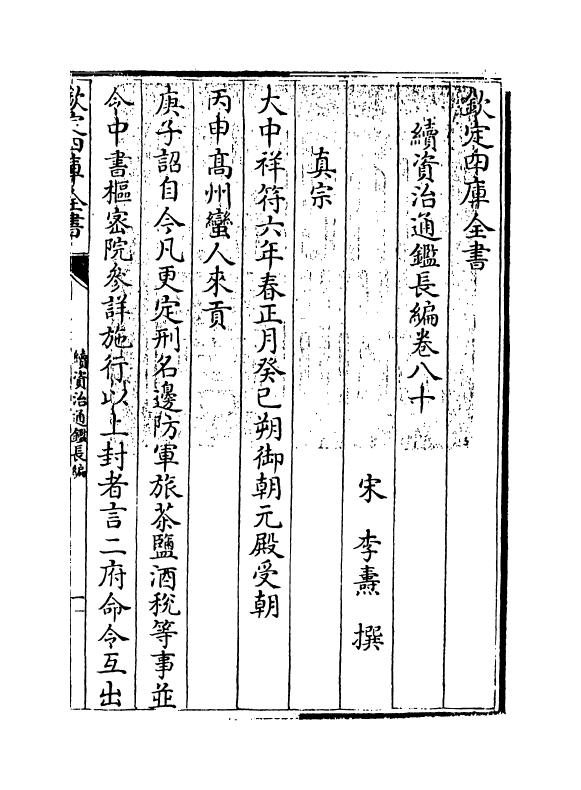 欽定四庫全書
續資治通鑑長編卷八十
宋 李燾 撰
真宗
大中祥符六年春正月癸巳朔御朝元殿受朝
丙申高州蠻人來貢
庚子詔自今凡更定刑名邊防軍旅茶鹽酒稅等事並
令中書樞密院參詳施行以上封者言二府命令互出
欽定四庫全書
續資治通鑑長編
一